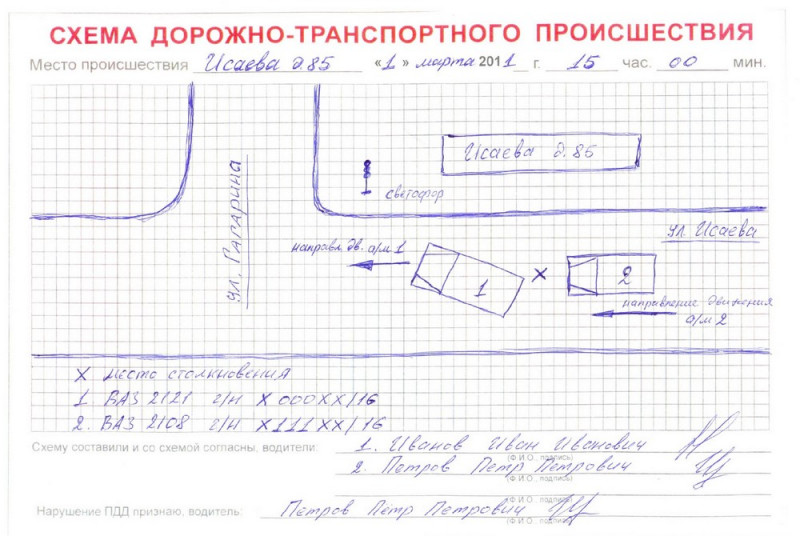 СХЕМА ДОРОЖНО-ТРАНСПОРТНОГО ПРОИСШЕСТВИЯ
Место происшествия Исаева д.85 «1» марта 2011 г. 15 час. 00 мин.
Исаева д.85
светофор
ул. Гагарина
ул. Исаева
направл. дв. а/м 1
1
X
2
направление движения
а/м 2
X место столкновения
1. ВАЗ 2121 г/н Х 000ХХ/16
2. ВАЗ 2108 г/н Х111ХХ/16
Схему составили и со схемой согласны, водители: 1. Иванов Иван Иванович
(Ф.И.О., подпись)
2. Петров Петр Петрович
(Ф.И.О., подпись)
(Ф.И.О., подпись)
Нарушение ПДД признаю, водитель: Петров Петр Петрович
(Ф.И.О., подпись)